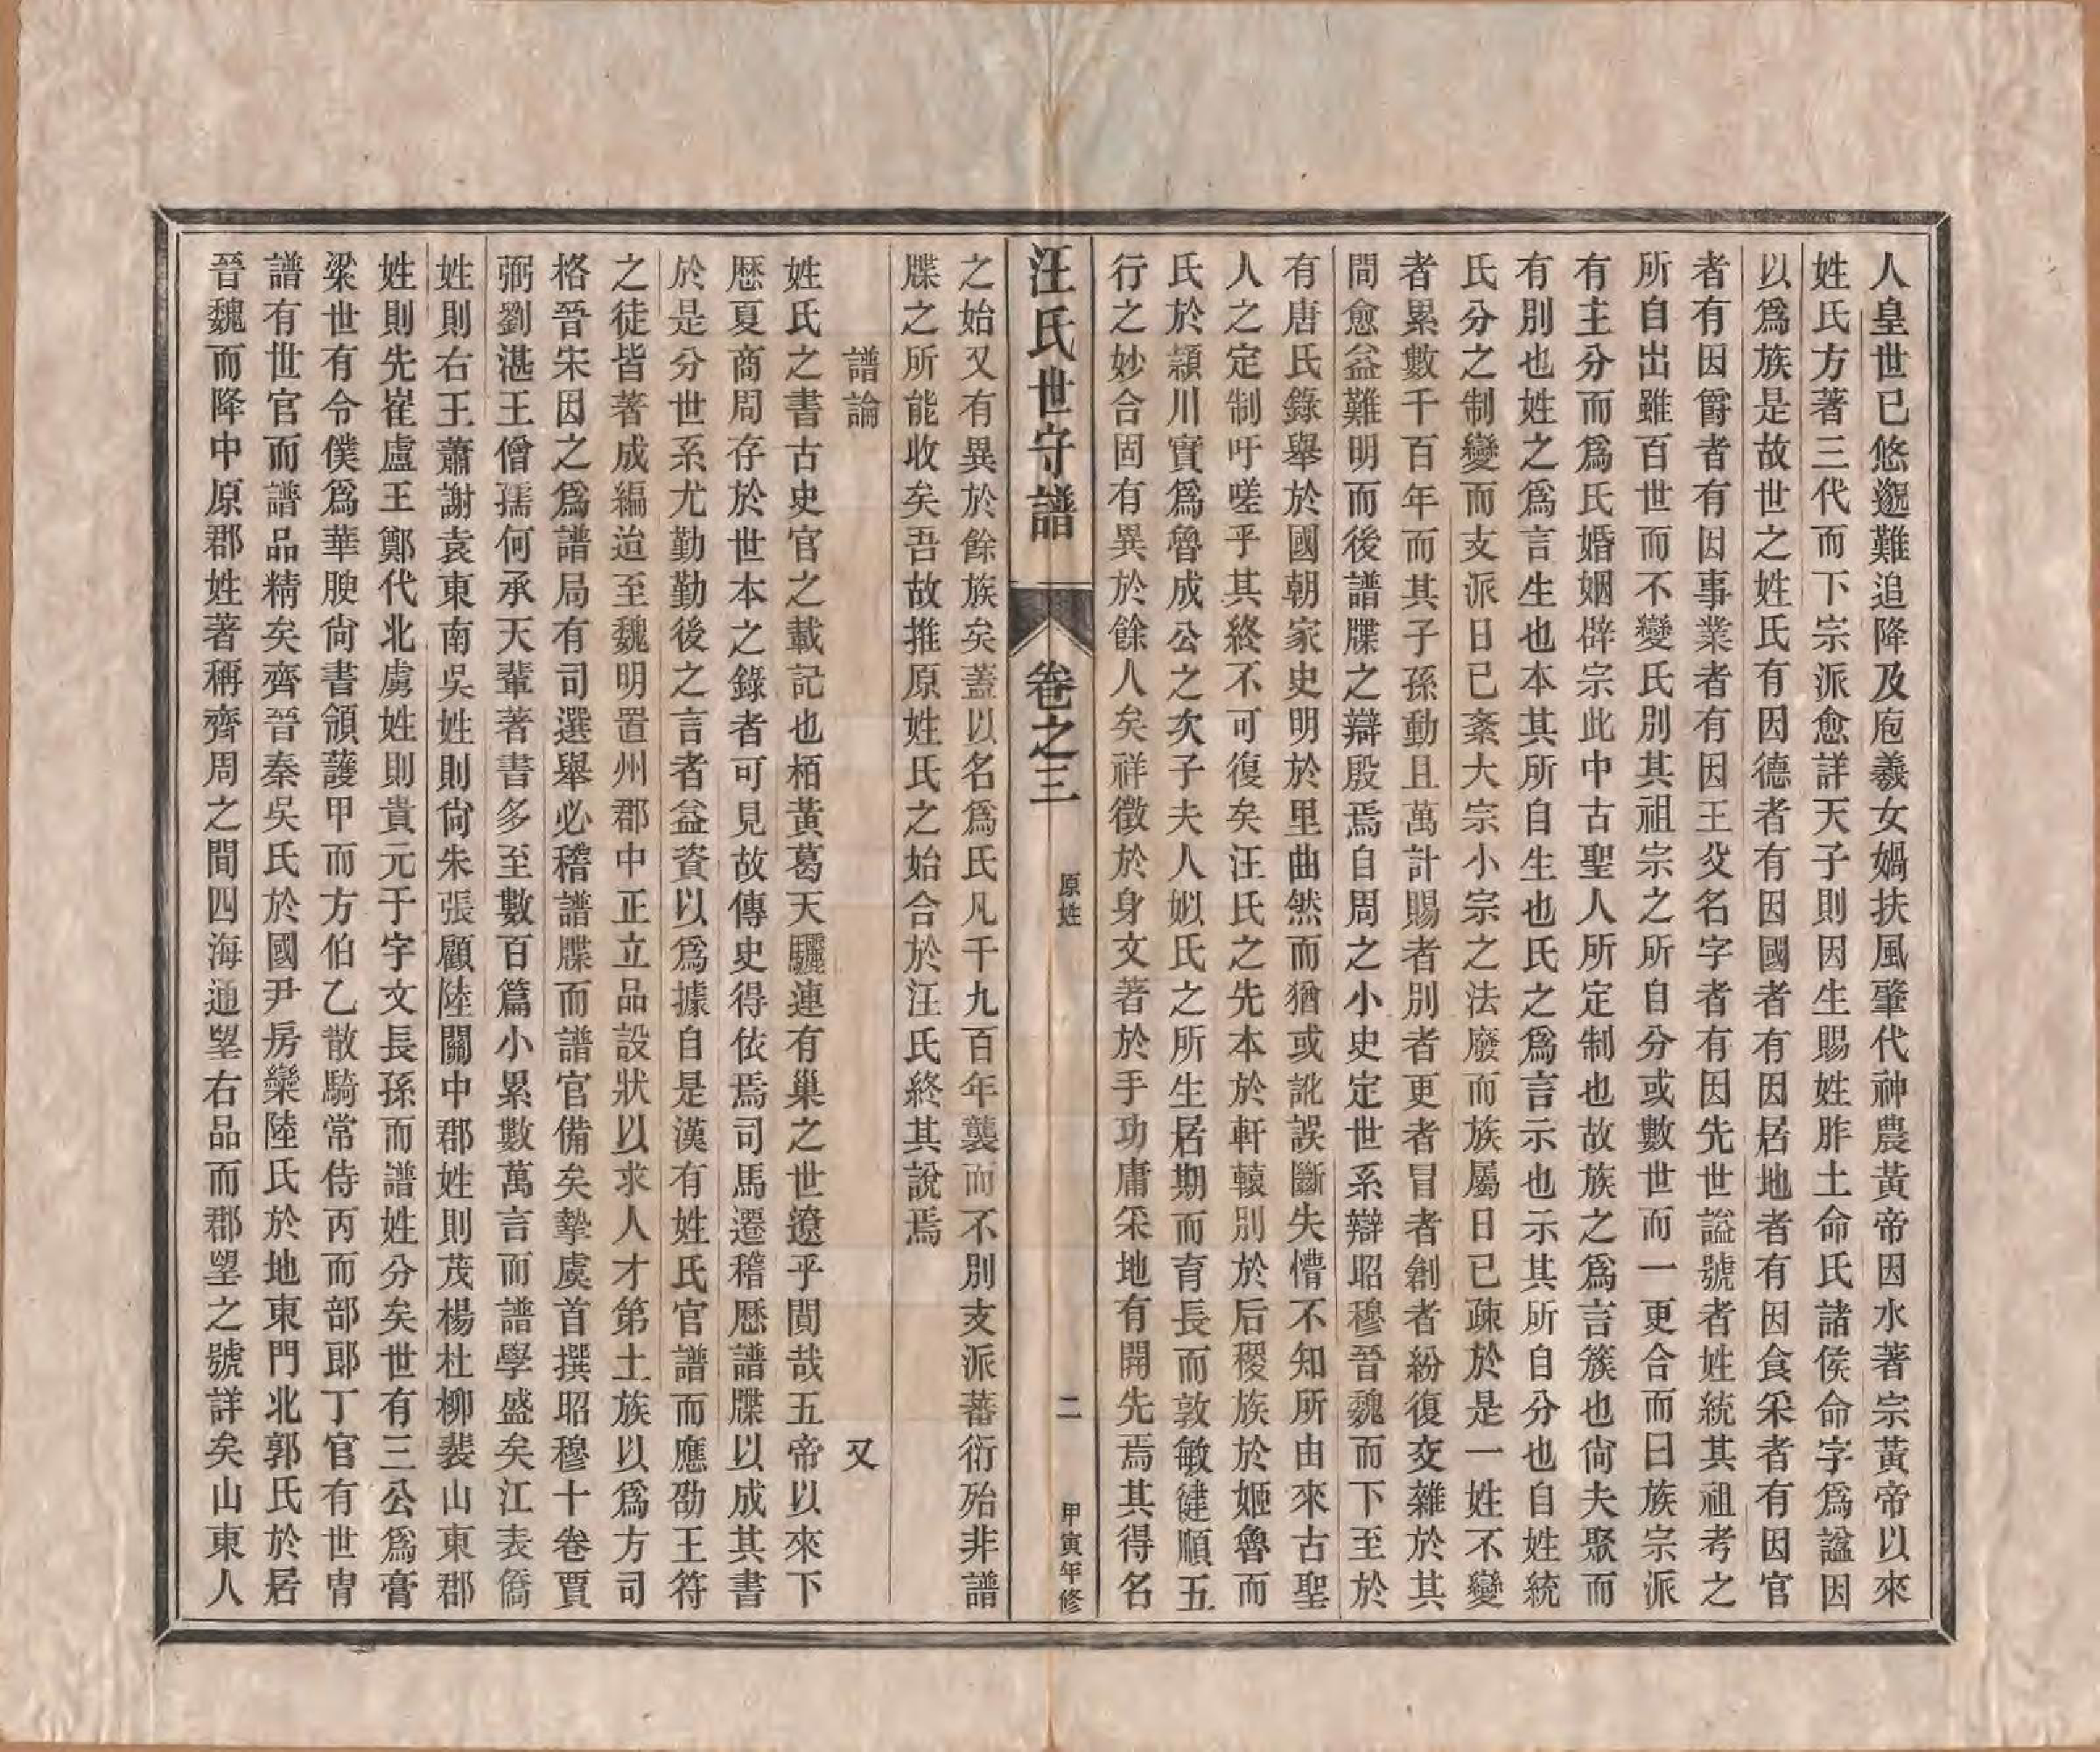 人皇世已悠邈難追降及庖羲女媧扶風肇代神農黃帝因水著宗黃帝以來
姓氏方著三代而下宗派愈詳天子則因生賜姓胙土命氏諸侯命字爲諡因
以爲族是故世之姓氏有因德者有因國者有因居地者有因食采者有因官
者有因爵者有因事業者有因王父名字者有因先世謚號者姓統其祖考之
所自出雖百世而不變氏別其祖宗之所自分或數世而一更合而曰族宗派
有主分而爲氏婚姻辟宗此中古聖人所定制也故族之爲言簇也尙夫聚而
有別也姓之爲言生也本其所自生也氏之爲言示也示其所自分也自姓統
氏分之制變而支派日已紊大宗小宗之法廢而族屬日已疎於是一姓不變
者累數千百年而其子孫動且萬計賜者別者更者冒者創者紛復交雜於其
間愈益難明而後譜牒之辯殷焉自周之小史定世系辯昭穆晉魏而下至於
有唐氏錄舉於國朝家史明於里曲然而猶或訛誤斷失懵不知所由來古聖
人之定制吁嗟乎其終不可復矣汪氏之先本於軒轅別於后稷族於姬魯而
氏於潁川實爲魯成公之次子夫人姒氏之所生居期而育長而敦敏徤順五
行之妙合固有異於餘人矣祥徵於身文著於手功庸采地有開先焉其得名
汪氏世守譜
卷之三
原姓
二
甲寅年修
之始又有異於餘族矣蓋以名爲氏凡千九百年襲而不別支派蕃衍殆非譜
牒之所能收矣吾故推原姓氏之始合於汪氏終其說焉
譜論 又
姓氏之書古史官之載記也栢黃葛天驪連有巢之世遼乎閴哉五帝以來下
歷夏商周存於世本之錄者可見故傳史得依焉司馬遷稽歷譜牒以成其書
於是分世系尤勤勤後之言者益資以爲據自是漢有姓氏官譜而應劭王符
之徒皆著成編迨至魏明置州郡中正立品設狀以求人才第士族以爲方司
格晉宋因之爲譜局有司選舉必稽譜牒而譜官備矣摯虞首撰昭穆十卷賈
弼劉湛王僧孺何承天輩著書多至數百篇小累數萬言而譜學盛矣江表僑
姓則右王蕭謝袁東南吳姓則尙朱張顧陸關中郡姓則茂楊杜柳裴山東郡
姓則先崔盧王鄭代北虜姓則貴元于宇文長孫而譜姓分矣世有三公爲膏
梁世有令僕爲華腴尙書領護甲而方伯乙散騎常侍丙而部郎丁官有世冑
譜有世官而譜品精矣齊晉秦吳氏於國尹房欒陸氏於地東門北郭氏於居
晉魏而降中原郡姓著稱齊周之間四海通望右品而郡望之號詳矣山東人